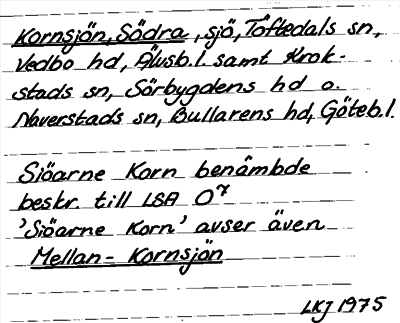 Kornsjön, Södra, sjö, Töftedals sn,
Vedbo hd, Älvsb.l. samt Krok-
stads sn, Sörbygdens hd o.
Naverstads sn, Bullarens hd, Göteb.l.
Siöarne Korn benämbde
beskr. till LSA O7
'Siöarne Korn' avser även
Mellan-Kornsjön
LKJ 1975